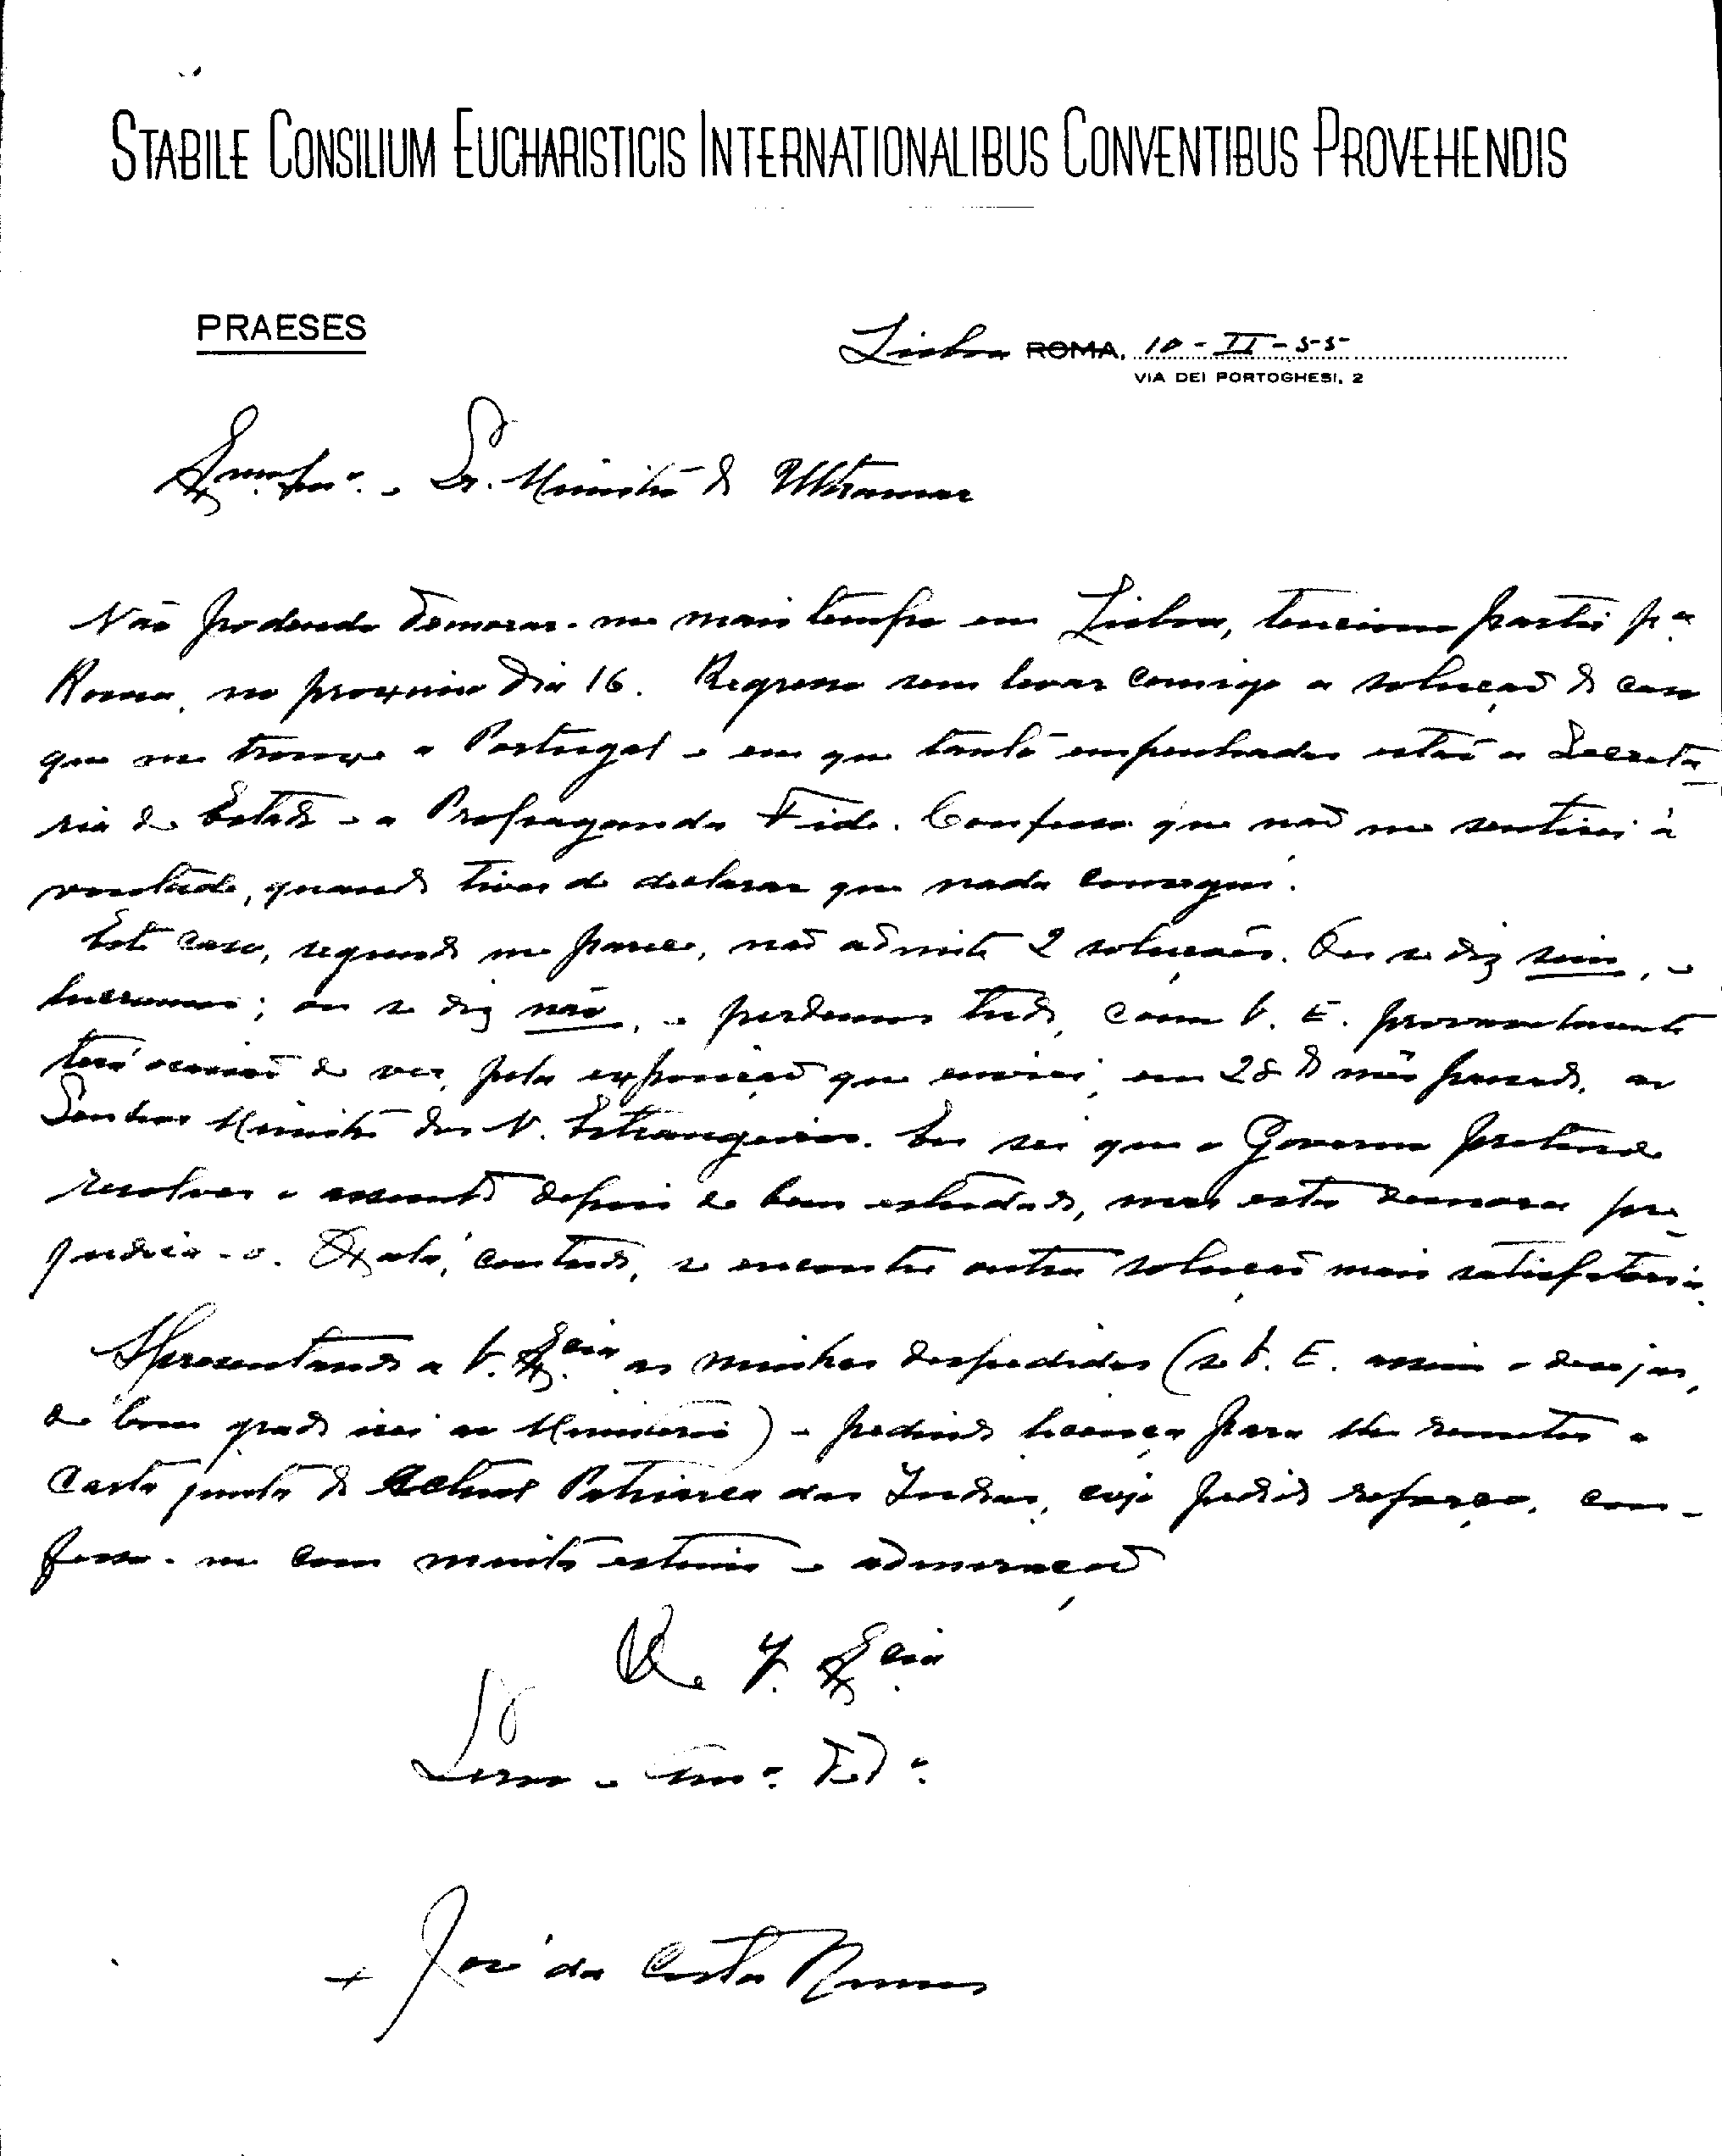 STABILE CONSILIUM EUCHARISTICIS INTERNATIONALIBUS CONVENTIBUS PROVEHENDIS
PRAESES
Lisboa ROMA, 10-II-55
VIA DEI PORTOGHESI, 2
Sr. Ministro do Ultramar
Não podendo demorar-me mais tempo em Lisboa, tenciono partir p.ª
Roma, no proximo dia 16. Regresso sem levar comigo a solução do caso
que me trouxe a Portugal e em que tanto empenhados estão a Secreta-
ria de Estado e a Propaganda Fide. Confesso que não me sentirei à
vontade, quando tiver de declarar que nada consegui.
Este caso, segundo me parece, não admite 2 soluções. Ou se diz sim, e
lucramos; ou se diz não, e perdemos tudo, como V. E. proximamente
terá ocasião de ver, pela exposição que enviei, em 28 do mês passado, ao
Senhor Ministro dos N. Estrangeiros. Eu sei que o Governo pretende
resolver o assunto depois de bem estudado, mas esta demora pre-
judica-o. Oxalá, contudo, se encontre outra solução mais satisfatoria.
Apresentando a V. Ex.cia as minhas despedidas (se V. E. assim o desejar,
de bom grado irei ao Ministerio) e pedindo licença para lhe remeter a
carta junta do actual Patriarca das Indias, cujo pedido reforço, con-
fesso-me com muita estima e admiração
De V. Ex.cia
+ José da Costa Nunes